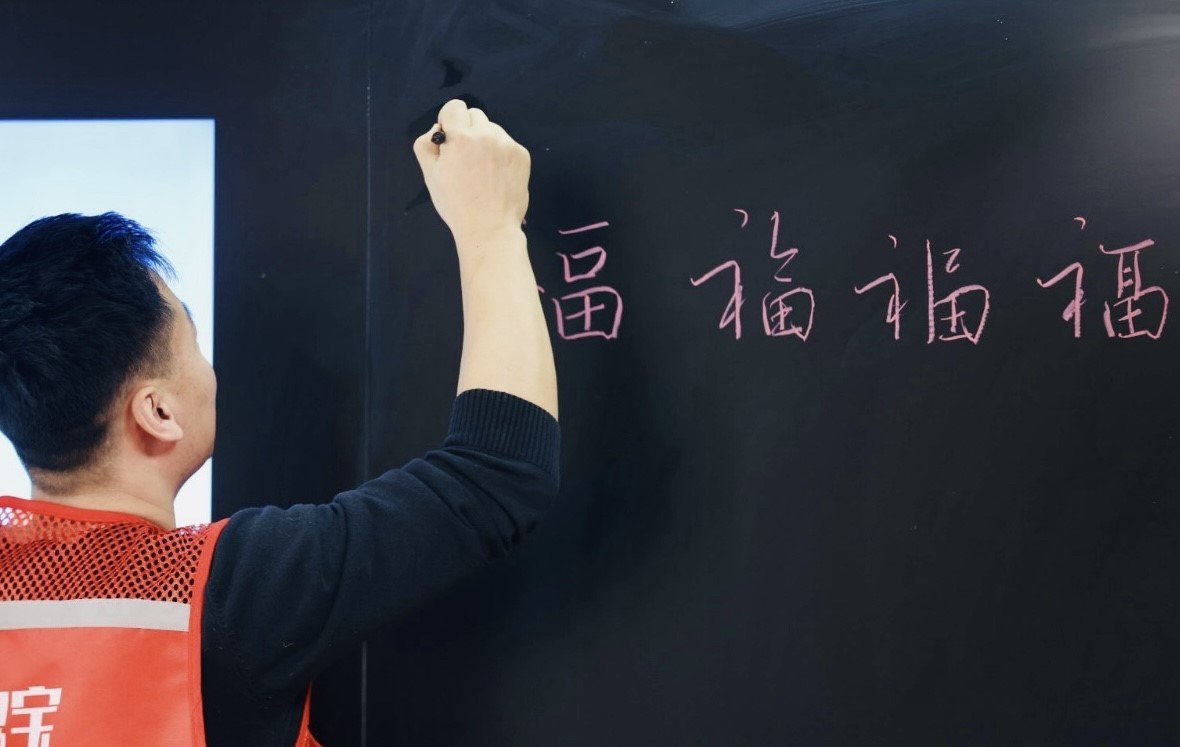 福 福 福 福